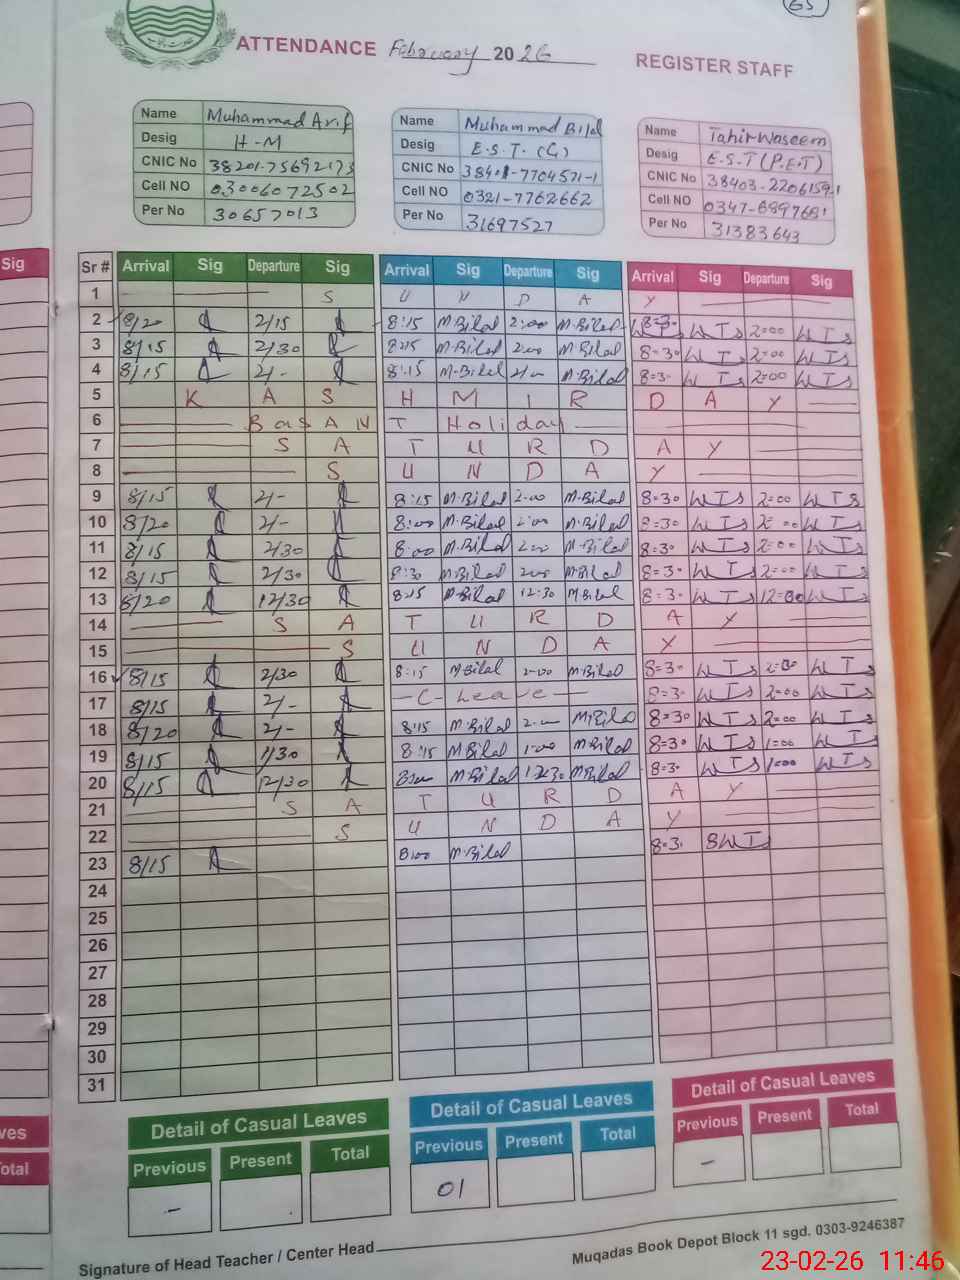 65
ATTENDANCE February 2026 REGISTER STAFF
Name Muhammad Arif
Desig H-M
CNIC No 38201-7569217-3
Cell NO 03006072502
Per No 30657013
Name Muhammad Bilal
Desig E.S.T. (G)
CNIC No 38401-7704571-1
Cell NO 0321-7762662
Per No 31697527
Name Tahir Waseem
Desig E.S.T (P.E.T)
CNIC No 38403-2206159-1
Cell NO 0347-6997681
Per No 31383643
Sig
Sr # Arrival Sig Departure Sig Arrival Sig Departure Sig Arrival Sig Departure Sig
1 S U N D A Y
2 8/20 2/15 8:15 M.Bilal 2:00 M.Bilal 8=30 WTs 2=00 WTs
3 8/15 2/30 8:15 M.Bilal 2:00 M.Bilal 8=30 WTs 2=00 WTs
4 8/15 2/- 8:15 M.Bilal 2/- M.Bilal 8=30 WTs 2=00 WTs
5 K A S H M I R D A Y
6 Basant Holiday
7 S A T U R D A Y
8 S U N D A Y
9 8/15 2/- 8:15 M.Bilal 2:00 M.Bilal 8=30 WTs 2=00 WTs
10 8/20 2/- 8:00 M.Bilal 2:00 M.Bilal 8=30 WTs 2=00 WTs
11 8/15 2/30 8:00 M.Bilal 2:00 M.Bilal 8=30 WTs 2=00 WTs
12 8/15 2/30 8:30 M.Bilal 2:00 M.Bilal 8=30 WTs 2=00 WTs
13 8/20 12/30 8:15 M.Bilal 12:30 M.Bilal 8=30 WTs 12=30 WTs
14 S A T U R D A Y
15 S U N D A Y
16 8/15 2/30 8:15 M.Bilal 2:00 M.Bilal 8=30 WTs 2=00 WTs
17 8/15 2/- C- Leave 8=30 WTs 2=00 WTs
18 8/20 2/- 8:15 M.Bilal 2:00 M.Bilal 8=30 WTs 2=00 WTs
19 8/15 1/30 8:15 M.Bilal 1:00 M.Bilal 8=30 WTs 1=00 WTs
20 8/15 12/30 8:00 M.Bilal 12:30 M.Bilal 8=30 WTs 1=00 WTs
21 S A T U R D A Y
22 S U N D A Y
23 8/15 8:00 M.Bilal 8=30 WTs
24
25
26
27
28
29
30
31
Detail of Casual Leaves Detail of Casual Leaves Detail of Casual Leaves
Previous Present Total Previous Present Total Previous Present Total
- 01 -
Signature of Head Teacher / Center Head
Muqadas Book Depot Block 11 sgd. 0303-9246387
23-02-26 11:46